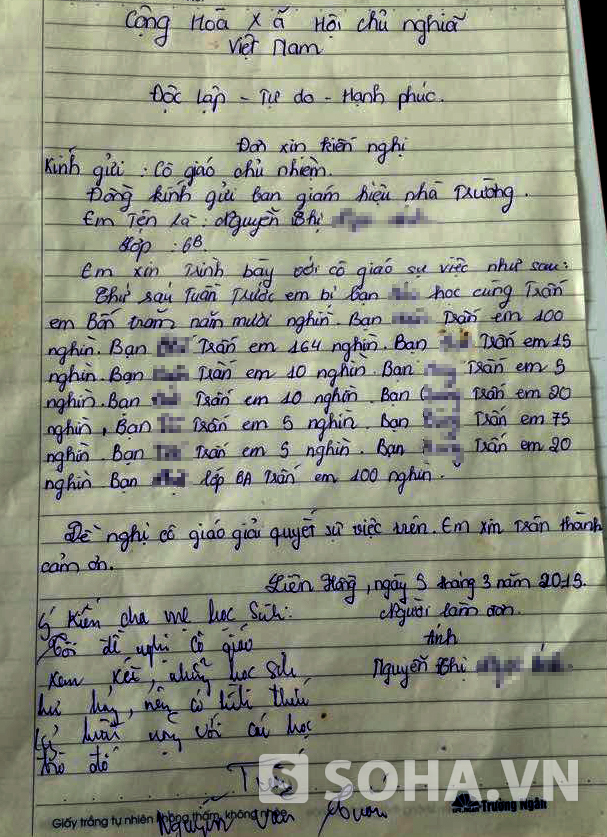 Cộng Hoà Xã Hội chủ nghĩa
Việt Nam
Độc lập - Tự do - Hạnh phúc.
Đơn xin kiến nghị
Kính gửi : Cô giáo chủ nhiệm.
Đồng kính gửi ban giám hiệu nhà Trường.
Em Tên là : Nguyễn Thị
Lớp : 6B
Em xin Trình bày với cô giáo sự việc như sau:
Thứ sáu Tuần Trước em bị bạn học cùng Trấn
em Bốn trăm năm mươi nghìn. Bạn Trấn em 100
nghìn. Bạn Trấn em 164 nghìn. Bạn Trấn em 15
nghìn. Bạn Trấn em 10 nghìn. Bạn Trấn em 5
nghìn. Bạn Trấn em 10 nghìn. Bạn Trấn em 20
nghìn, Bạn Trấn em 5 nghìn. Bạn Trấn em 75
nghìn. Bạn Trấn em 5 nghìn. Bạn Trấn em 20
nghìn Bạn lớp 6A Trấn em 100 nghìn.
Đề nghị cô giáo giải quyết sự việc trên. Em xin Trân thành
cảm ơn.
Liên Hồng, ngày 3 tháng 3 năm 2015.
Ý kiến cha mẹ học sinh:
Người làm đơn.
Tôi đề nghị cô giáo
Ánh
xem xét, những học sinh
Nguyễn Thị
hư này, nên có hình thức
kỷ luật với các học
trò đó
Nguyễn Văn
SOHA.VN
Giấy trắng tự nhiên không thấm, không nhòe
Trường Ngân